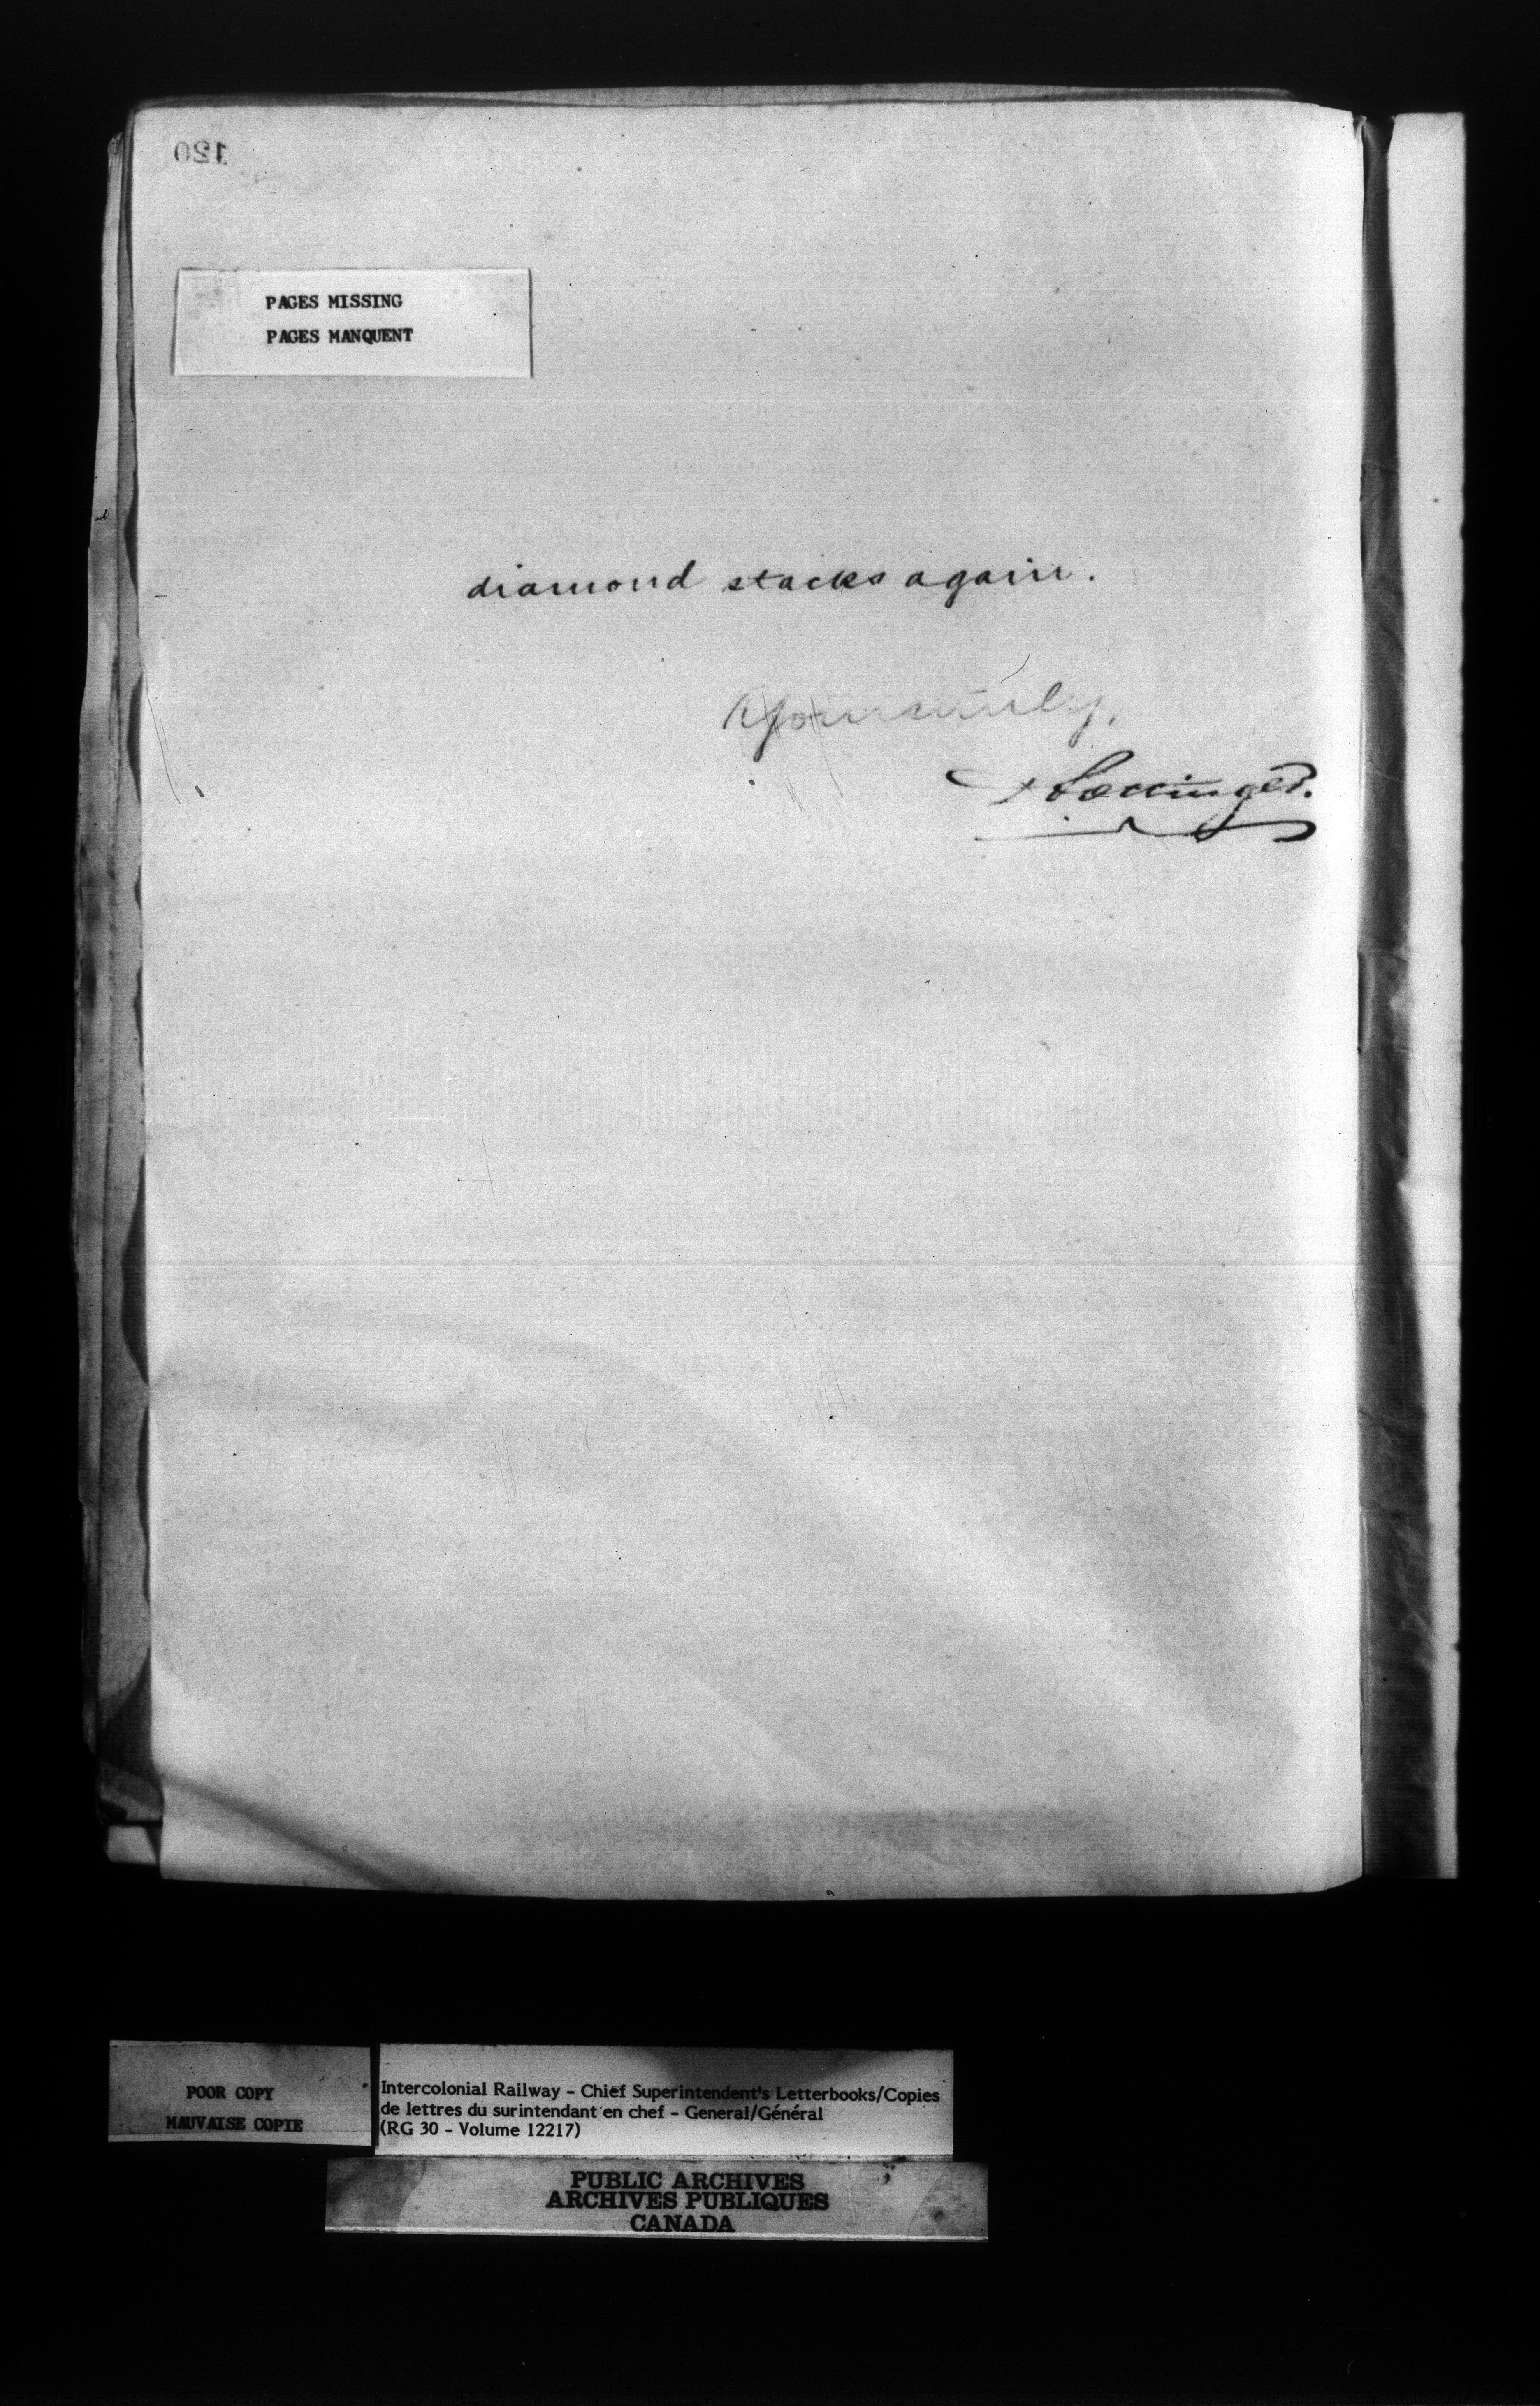 120
PAGES MISSING
PAGES MANQUENT
diamond stacks again.
Yours truly,
D Pottinger.
POOR COPY
MAUVAISE COPIE
Intercolonial Railway - Chief Superintendent's Letterbooks/Copies
de lettres du surintendant en chef - General/Général
(RG 30 - Volume 12217)
PUBLIC ARCHIVES
ARCHIVES PUBLIQUES
CANADA